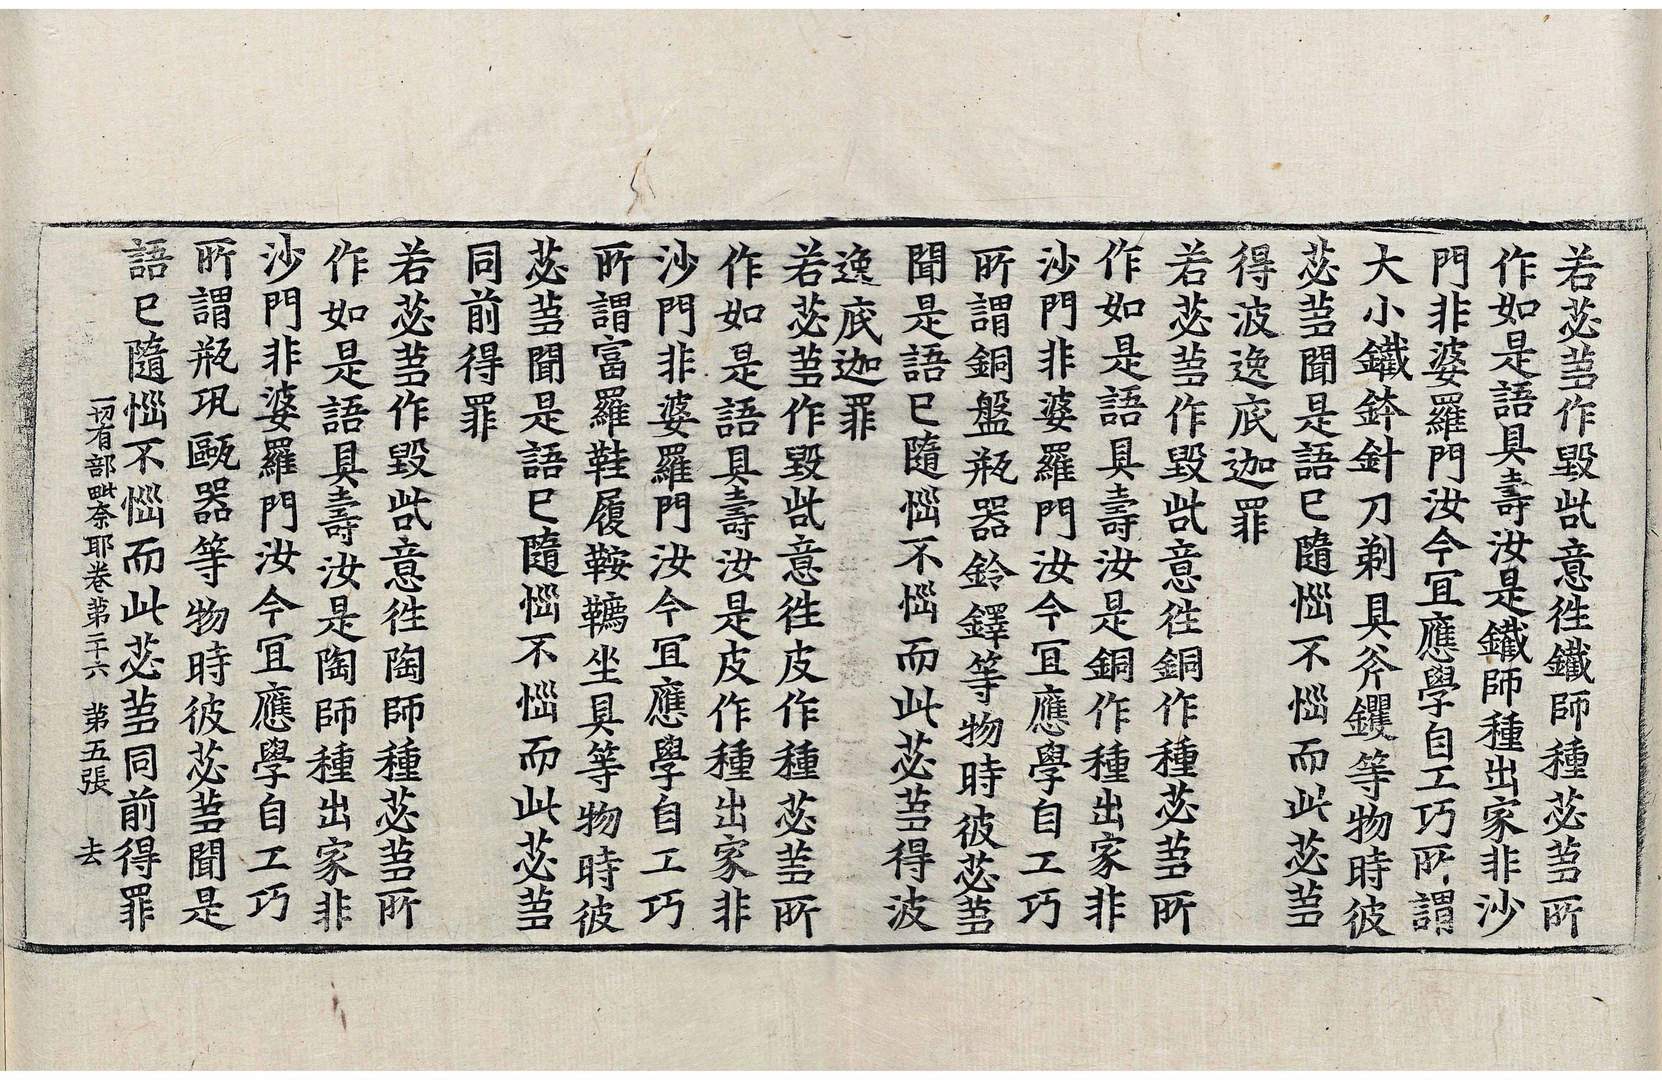 若苾芻作毀呰意往鐵師種苾芻所
作如是語具壽汝是鐵師種出家非沙
門非婆羅門汝今宜應學自工巧所謂
大小鐵鉢針刀剃具斧钁等物時彼
苾芻聞是語已隨惱不惱而此苾芻
得波逸底迦罪
若苾芻作毀呰意往銅作種苾芻所
作如是語具壽汝是銅作種出家非
沙門非婆羅門汝今宜應學自工巧
所謂銅盤瓶器鈴鐸等物時彼苾芻
聞是語已隨惱不惱而此苾芻得波
逸底迦罪
若苾芻作毀呰意往皮作種苾芻所
作如是語具壽汝是皮作種出家非
沙門非婆羅門汝今宜應學自工巧
所謂富羅鞋履鞍韉坐具等物時彼
苾芻聞是語已隨惱不惱而此苾芻
同前得罪
若苾芻作毀呰意往陶師種苾芻所
作如是語具壽汝是陶師種出家非
沙門非婆羅門汝今宜應學自工巧
所謂瓶瓨甌器等物時彼苾芻聞是
語已隨惱不惱而此苾芻同前得罪
一切有部毗奈耶卷第二十六 第五張 去